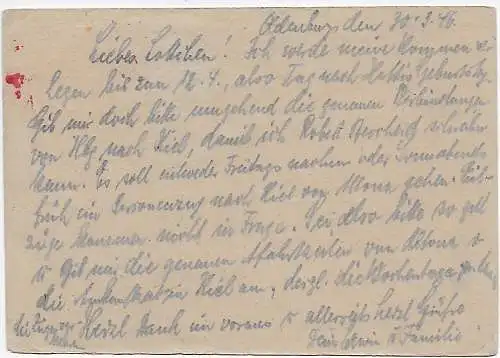 Oldenburg, den 30.3.46.
Liebes Lottchen! Ich werde meine Kommen ver-
legen bis zum 12.4., also Tag nach Geburtstg.
Gib mir doch bitte umgehend die genauen Verbindungen
von Hbg nach Kiel, damit ich Robert schreiben
kann. Es soll entweder Freitags nachm oder Sonnabends
früh ein Personenzug nach Kiel von Altona gehen.
züge kommen nicht in Frage. Sei also bitte so gut
u gib mir die genauen Abfahrtzeiten von Altona u
die Ankunft in Kiel an, dergl. die Wochentage
Herzl Dank im voraus u allerseits herzl Grüße
Dein Erwin u Familie